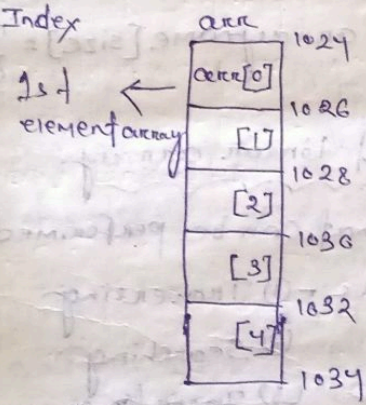 Index arr
1024
arr[0]
1st
element array
1026
[1]
1028
[2]
1030
[3]
1032
[4]
1034